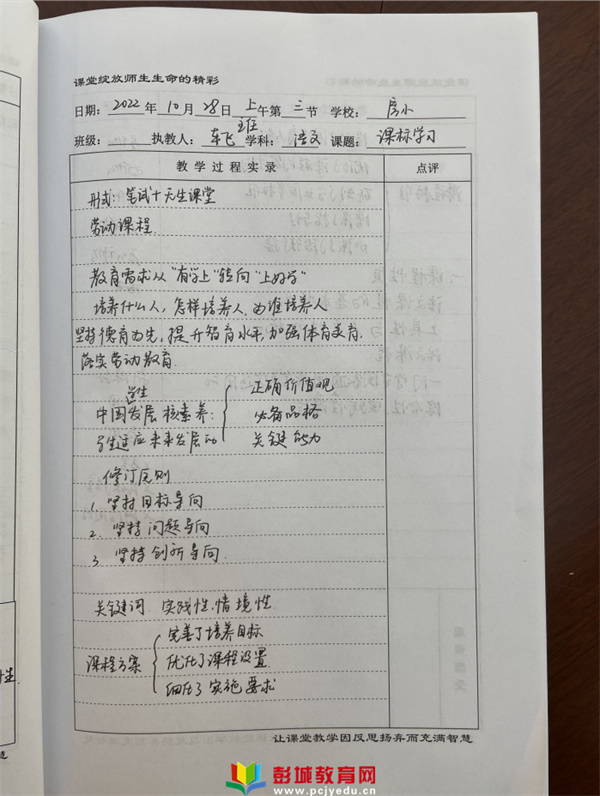 课堂绽放师生生命的精彩
日期: 2022 年 10 月 28 日 上 午第 三 节 学校: 房小
班级: 执教人: 车飞 学科: 语文 课题: 课标学习
教学过程实录 点评
形式: 笔试十天生课堂
劳动课程
教育需求从“有学上”转向“上好学”
培养什么人, 怎样培养人 为谁培养人
坚持德育为先, 提升智育水平, 加强体育美育.
落实劳动教育.
学生
中国发展核素养: 正确价值观
必备品格
学生适应未来发展的 关键能力
修订原则
1. 坚持目标导向
2. 坚持问题导向
3. 坚持创新导向
关键词 实践性, 情境性
完善了培养目标
课程方案 优化了课程设置
细化了实施要求
让课堂教学因反思扬弃而充满智慧
彭城教育网
www.pcjyedu.cn